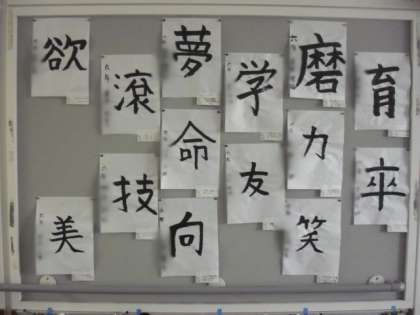 育
卒
磨
力
笑
学
友
夢
命
向
滾
技
欲
美